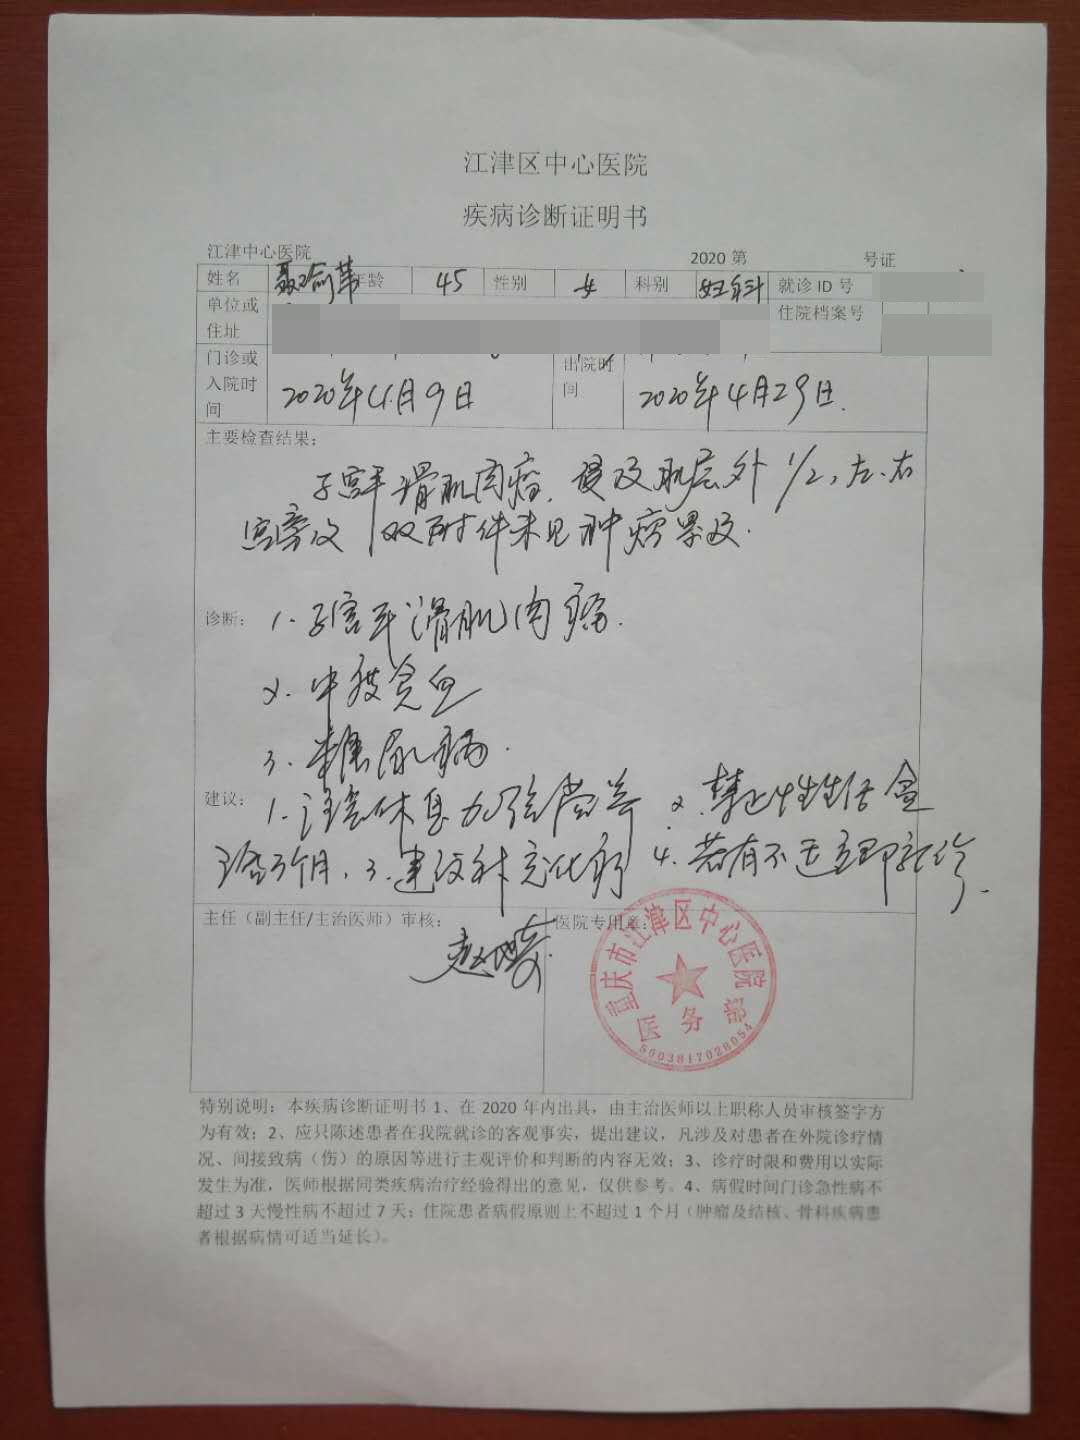 江津区中心医院
疾病诊断证明书
江津中心医院 2020 第 号证
姓名 年龄 45 性别 女 科别 妇科 就诊 ID 号
单位或住址 住院档案号
门诊或入院时间 2020年4月9日 出院时间 2020年4月29日.
主要检查结果:
子宫平滑肌肉瘤, 浸及肌层外 1/2, 左、右
宫旁及双附件未见肿瘤累及.
诊断: 1. 子宫平滑肌肉瘤.
2. 中度贫血
3. 糖尿病.
建议: 1. 注意休息加强营养 2. 禁止性生活盆
浴3个月. 3. 建议科室化疗 4. 若有不适立即就诊.
主任（副主任/主治医师）审核: 医院专用章:
重庆市江津区中心医院
医务部
5003817028054
特别说明: 本疾病诊断证明书 1、在 2020 年内出具, 由主治医师以上职称人员审核签字方
为有效; 2、应只陈述患者在我院就诊的客观事实, 提出建议, 凡涉及对患者在外院诊疗情
况、间接致病（伤）的原因等进行主观评价和判断的内容无效; 3、诊疗时限和费用以实际
发生为准, 医师根据同类疾病治疗经验得出的意见, 仅供参考。4、病假时间门诊急性病不
超过 3 天慢性病不超过 7 天; 住院患者病假原则上不超过 1 个月（肿瘤及结核、骨科疾病患
者根据病情可适当延长）。